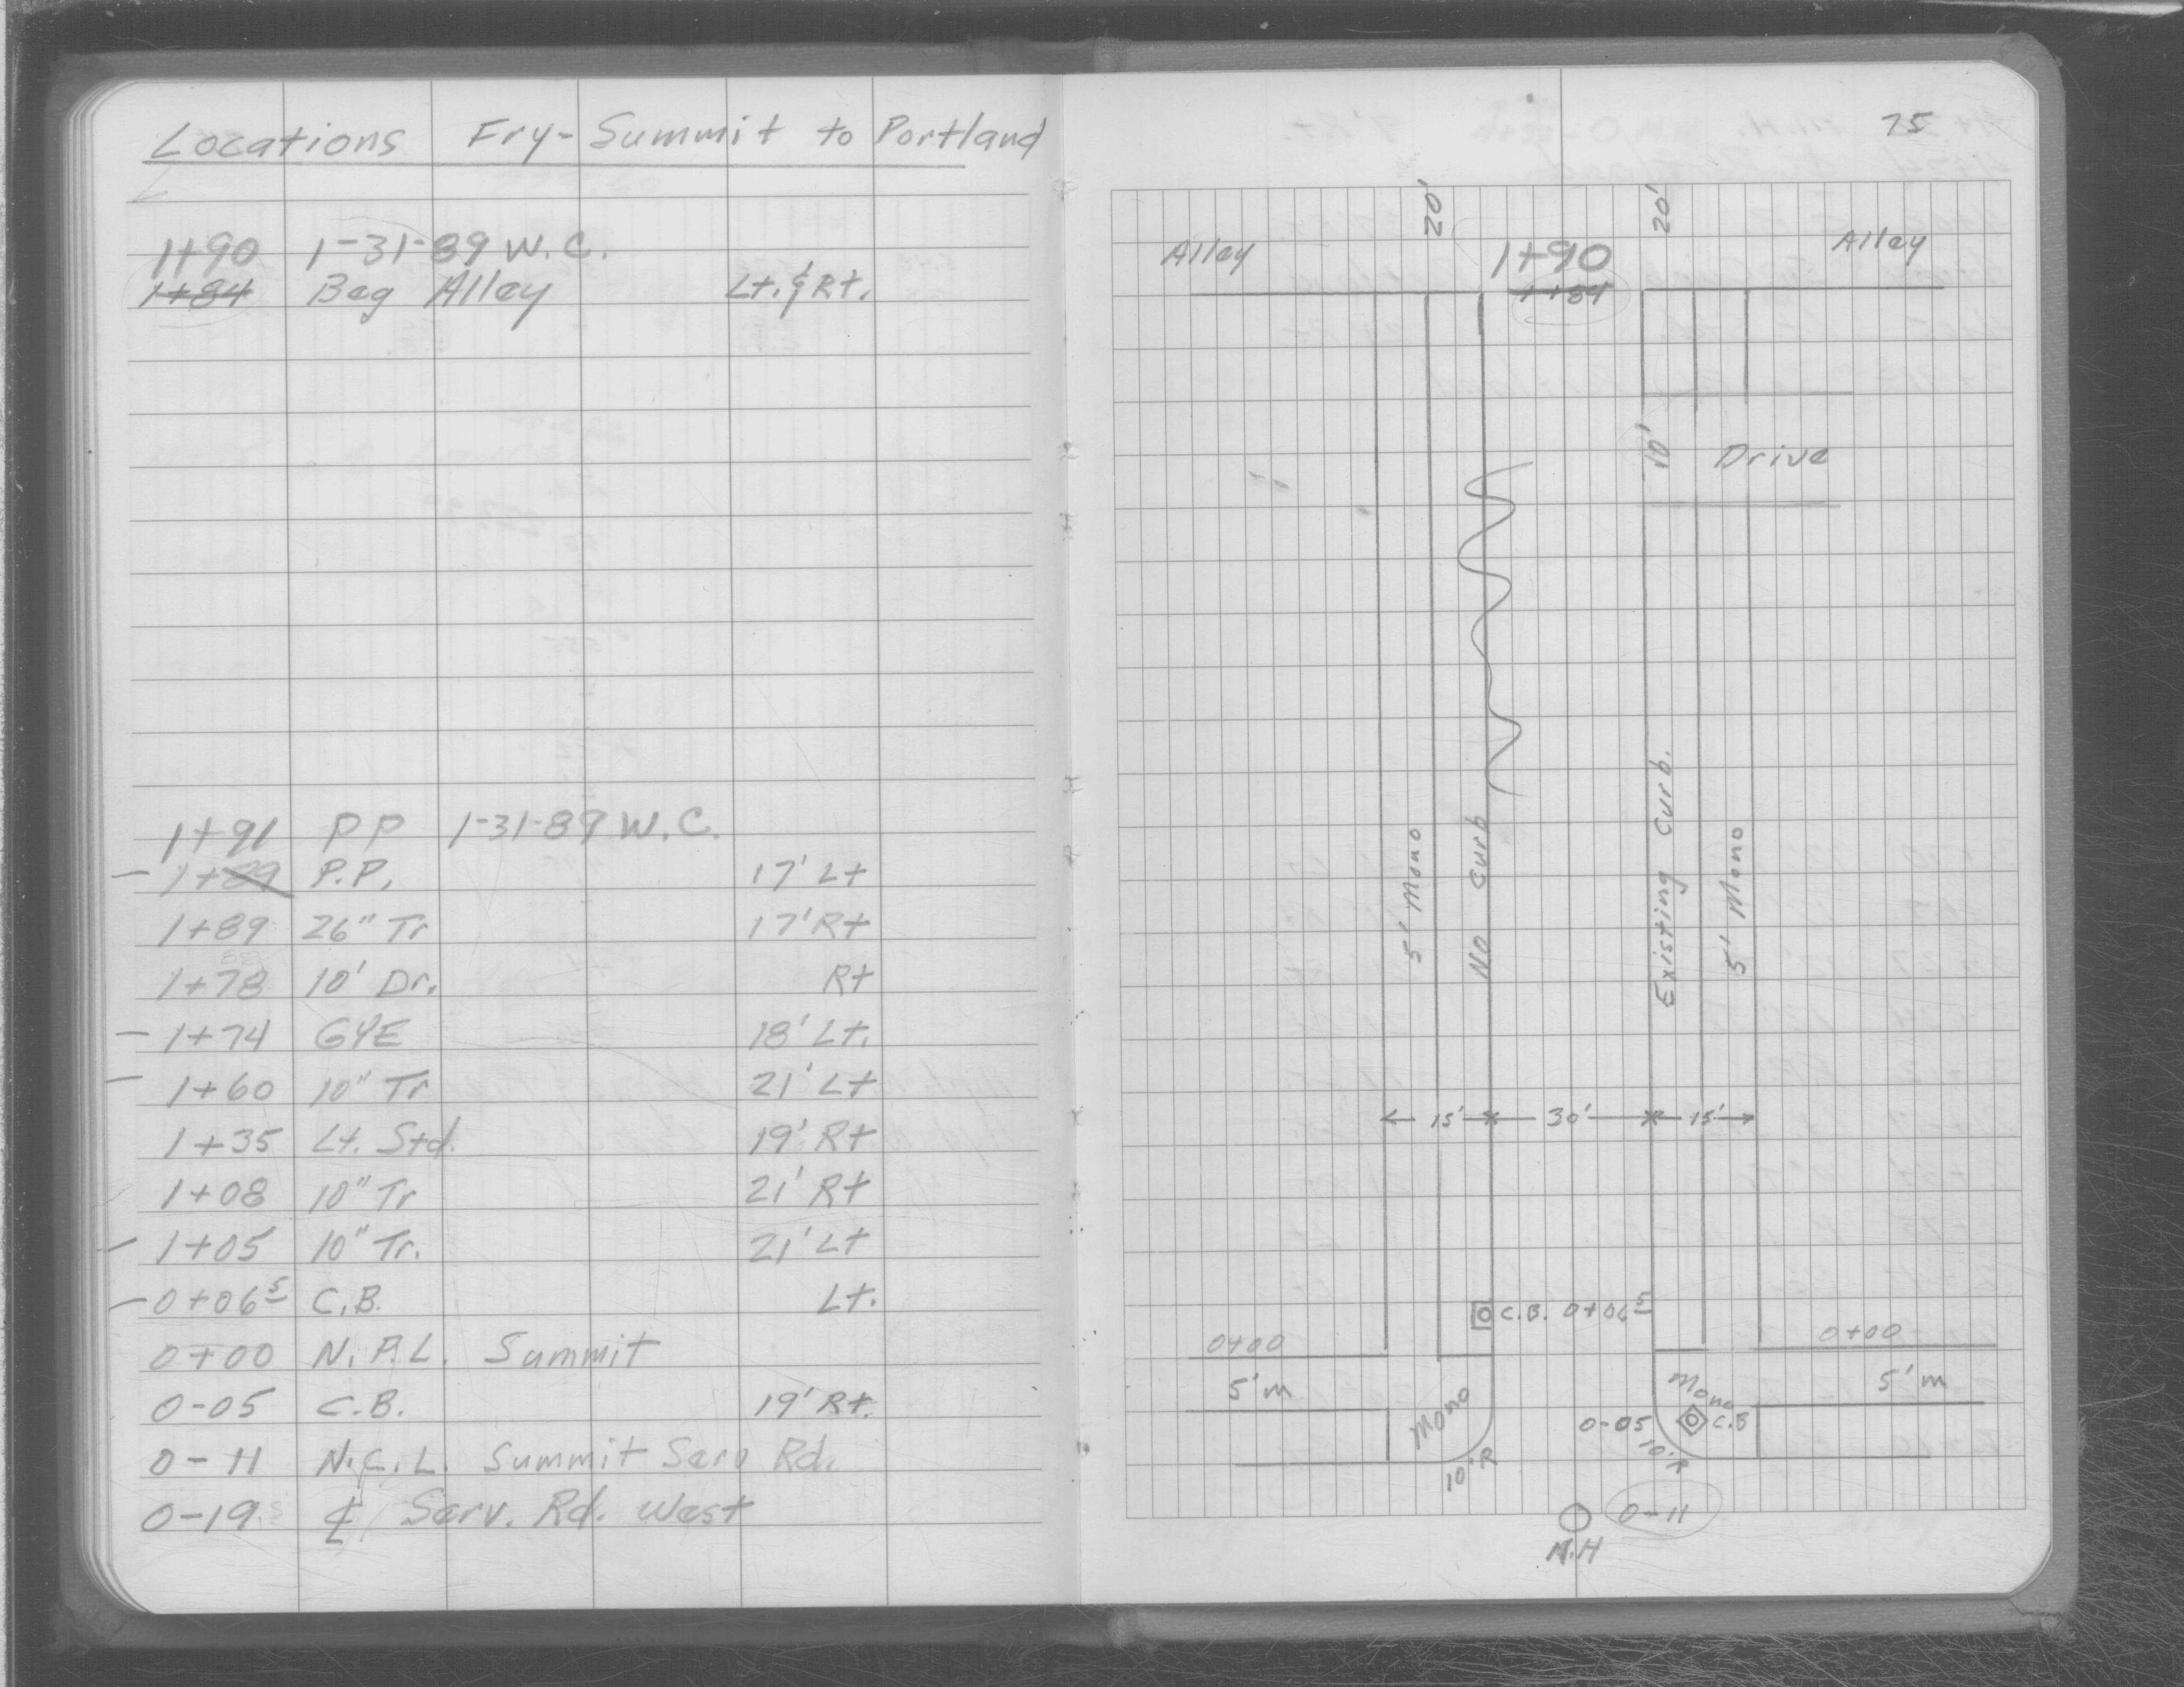 Locations Fry-Summit to Portland
1+90 1-31-89 W.C.
1+84 Beg Alley Lt. & Rt.
1+91 PP 1-31-89 W.C.
1+89 P.P. 17' Lt
1+89 26" Tr 17' Rt
88
1+78 10' Dr. Rt
1+74 GYE 18' Lt.
1+60 10" Tr 21' Lt
1+35 Lt. Std. 19' Rt
1+08 10" Tr 21' Rt
1+05 10" Tr. 21' Lt
0+06⁵ C.B. Lt.
0+00 N.P.L. Summit
0-05 C.B. 19' Rt.
0-11 N.C.L. Summit Serv Rd.
0-19 ℄ Serv. Rd. West
75
20' 20'
Alley 1+90 Alley
1+84
10' Drive
5' Mono
No Curb
Existing Curb.
5' Mono
15' 30' 15'
C.B. 0+06⁵
0+00 0+00
5' m Mono Mono 5' m
0-05 C.B
10' R 10' R
0-11
M.H